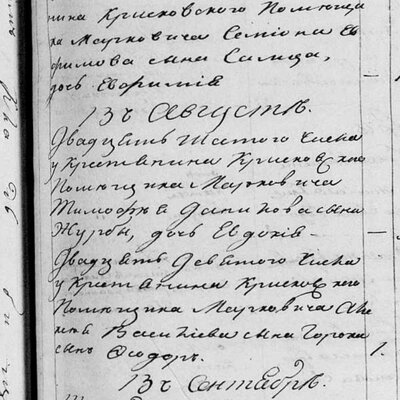 нина Крисковского Помѣщи
ка Марковича Семіона Еѳ
фимова сына
дочь Евфимія
Въ Августѣ.
Двадцать шестого числа
у Крестянина Крисковского
Помѣщика Марковича
Тимофѣя Данилова сына
Журбы, дочь Евдокія
Двадцать девятого числа
у Крестянина Крисковского
Помѣщика Марковича
Васильева сына
сынъ Ѳеодоръ. 1.
Въ Сентябрѣ.